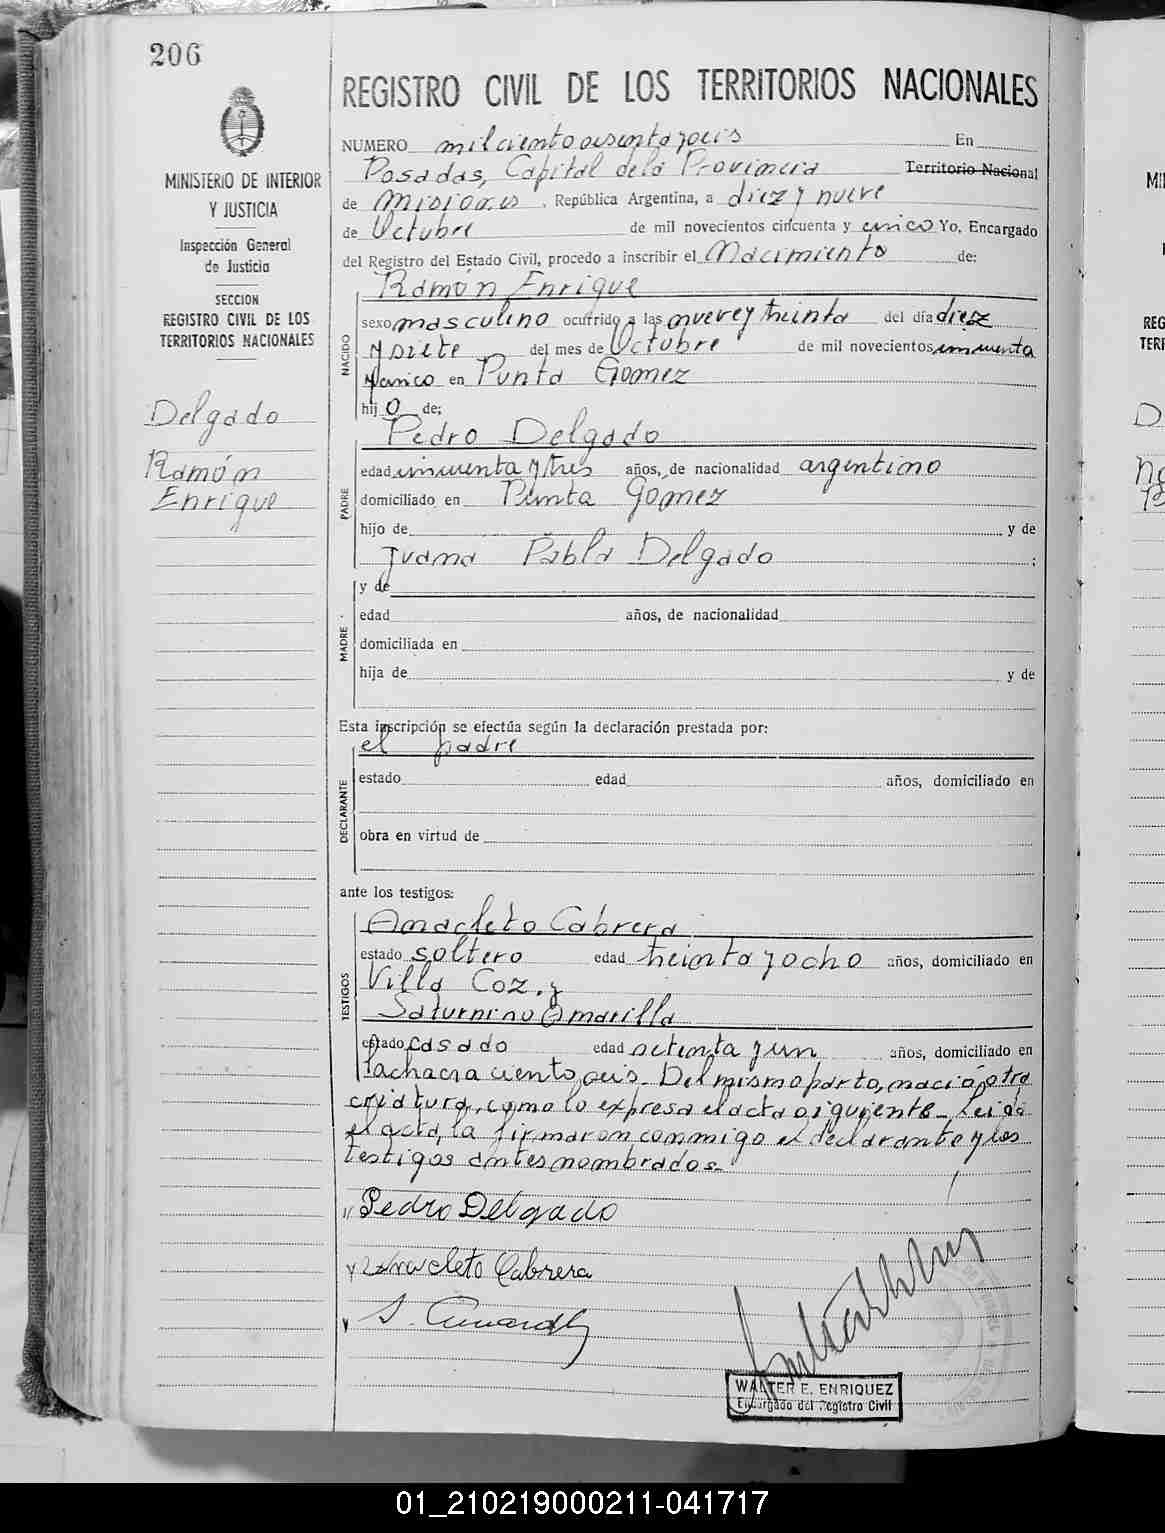 206
REGISTRO CIVIL DE LOS TERRITORIOS NACIONALES
MINISTERIO DE INTERIOR
Y JUSTICIA
Inspección General
de Justicia
SECCION
REGISTRO CIVIL DE LOS
TERRITORIOS NACIONALES
Delgado
Ramón
Enrique
NUMERO mil ciento sesenta y seis En
Posadas, Capital de la Provincia Territorio Nacional
de Misiones, República Argentina, a diez y nueve
de Octubre de mil novecientos cincuenta y cinco Yo, Encargado
del Registro del Estado Civil, procedo a inscribir el Nacimiento de:
Ramón Enrique
NACIDO
sexo masculino ocurrido a las nueve y treinta del día diez
y siete del mes de Octubre de mil novecientos cincuenta
y cinco en Punta Gomez
hijo de;
Pedro Delgado
PADRE
edad cincuenta y tres años, de nacionalidad argentino
domiciliado en Punta Gomez
hijo de y de
Juana Pabla Delgado ;
y de
MADRE
edad años, de nacionalidad
domiciliada en
hija de y de
Esta inscripción se efectúa según la declaración prestada por:
el padre
DECLARANTE
estado edad años, domiciliado en
obra en virtud de
ante los testigos:
Anacleto Cabrera
TESTIGOS
estado soltero edad treinta y ocho años, domiciliado en
Villa Coz. y
Saturnino Amarilla
estado casado edad setenta y un años, domiciliado en
la chacra ciento seis. Del mismo parto, nació otra
criatura, como lo expresa el acta siguiente. Leida
el acta, la firmaron conmigo el declarante y los
testigos antes nombrados.
Pedro Delgado
Anacleto Cabrera
S. Amarilla
WALTER E. ENRIQUEZ
Encargado del Registro Civil
01_210219000211-041717